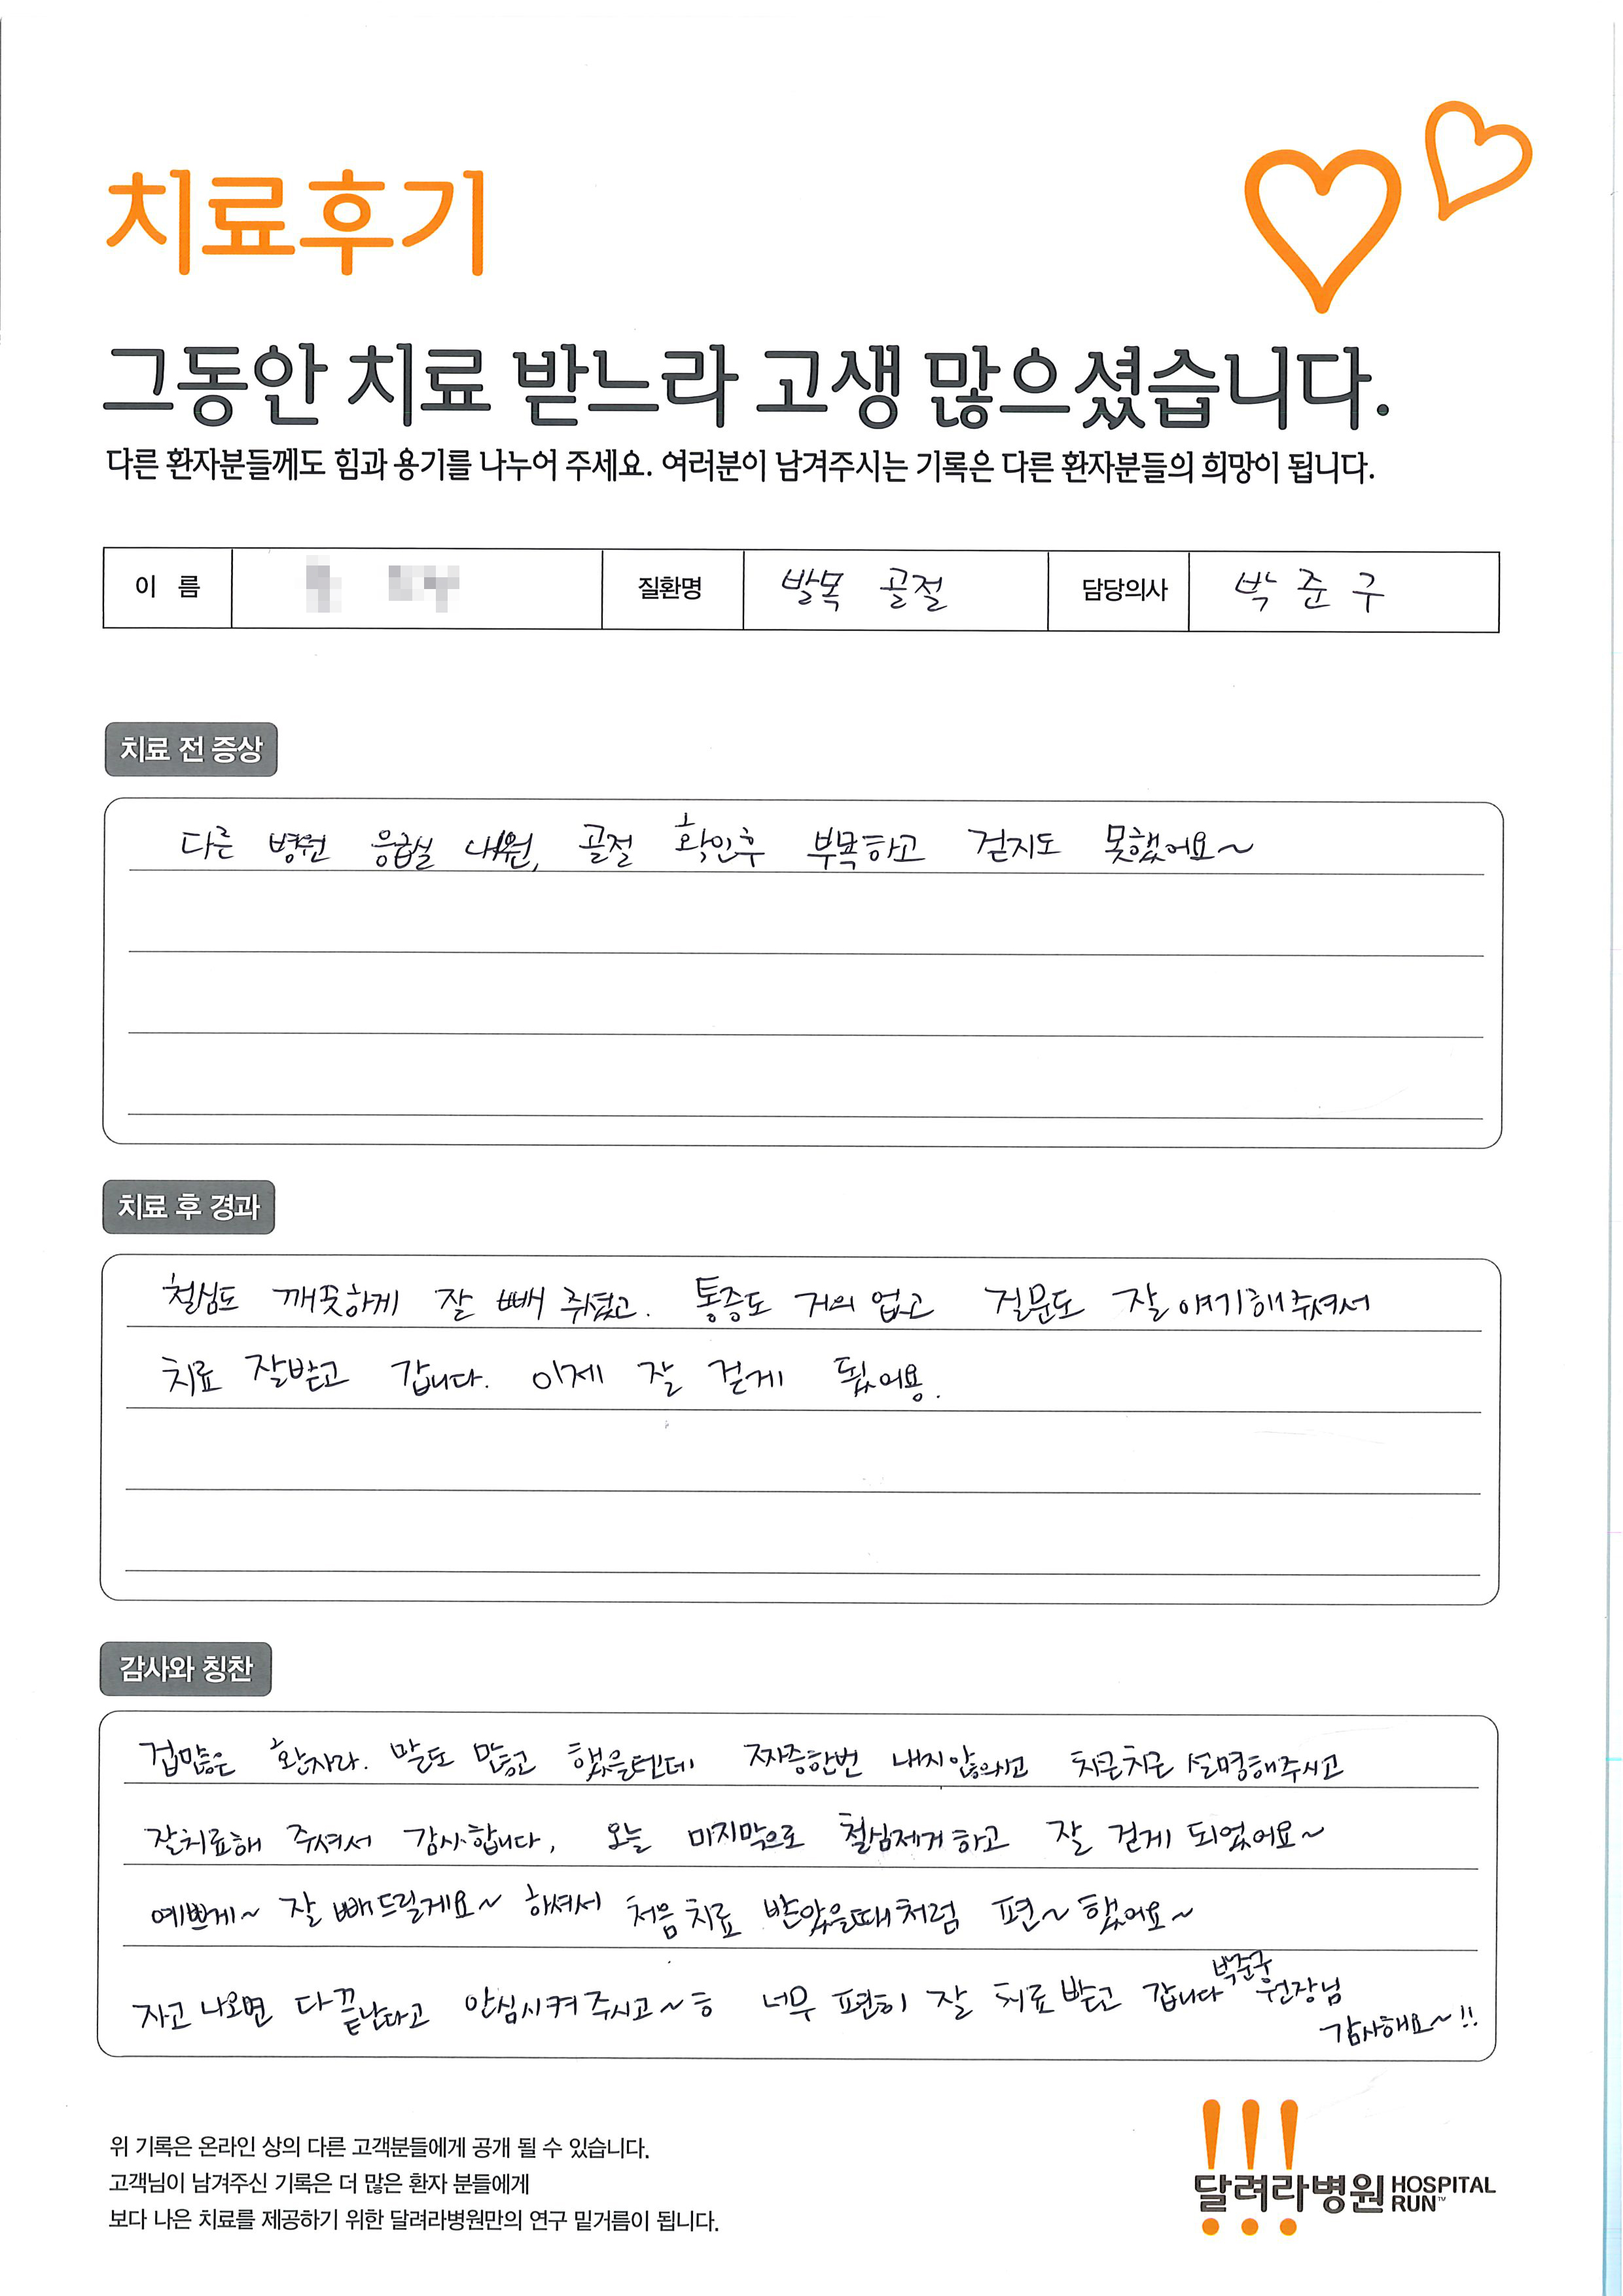 치료후기
그동안 치료 받느라 고생 많으셨습니다.
다른 환자분들께도 힘과 용기를 나누어 주세요. 여러분이 남겨주시는 기록은 다른 환자분들의 희망이 됩니다.
이 름 질환명 발목 골절 담당의사 박 준 구
치료 전 증상
다른 병원 응급실 내원, 골절 확인후 부목하고 걷지도 못했어요~
치료 후 경과
철심도 깨끗하게 잘 빼 주셨고. 통증도 거의 없고 질문도 잘 얘기해주셔서
치료 잘받고 갑니다. 이제 잘 걷게 됐어용.
감사와 칭찬
겁많은 환자라. 말도 많고 했을텐데 짜증한번 내지않으시고 차근차근 설명해주시고
잘치료해 주셔서 감사합니다, 오늘 마지막으로 철심제거하고 잘 걷게 되었어요~
예쁘게~ 잘 빼드릴게요~ 하셔서 처음치료 받았을때처럼 편~했어요~
자고 나오면 다 끝난다고 안심시켜 주시고~ㅎ 너무 편히 잘 치료받고 갑니다 박준구 원장님
감사해요~!!
위 기록은 온라인 상의 다른 고객분들에게 공개 될 수 있습니다.
고객님이 남겨주신 기록은 더 많은 환자 분들에게
보다 나은 치료를 제공하기 위한 달려라병원만의 연구 밑거름이 됩니다.
달려라병원 HOSPITAL RUN™